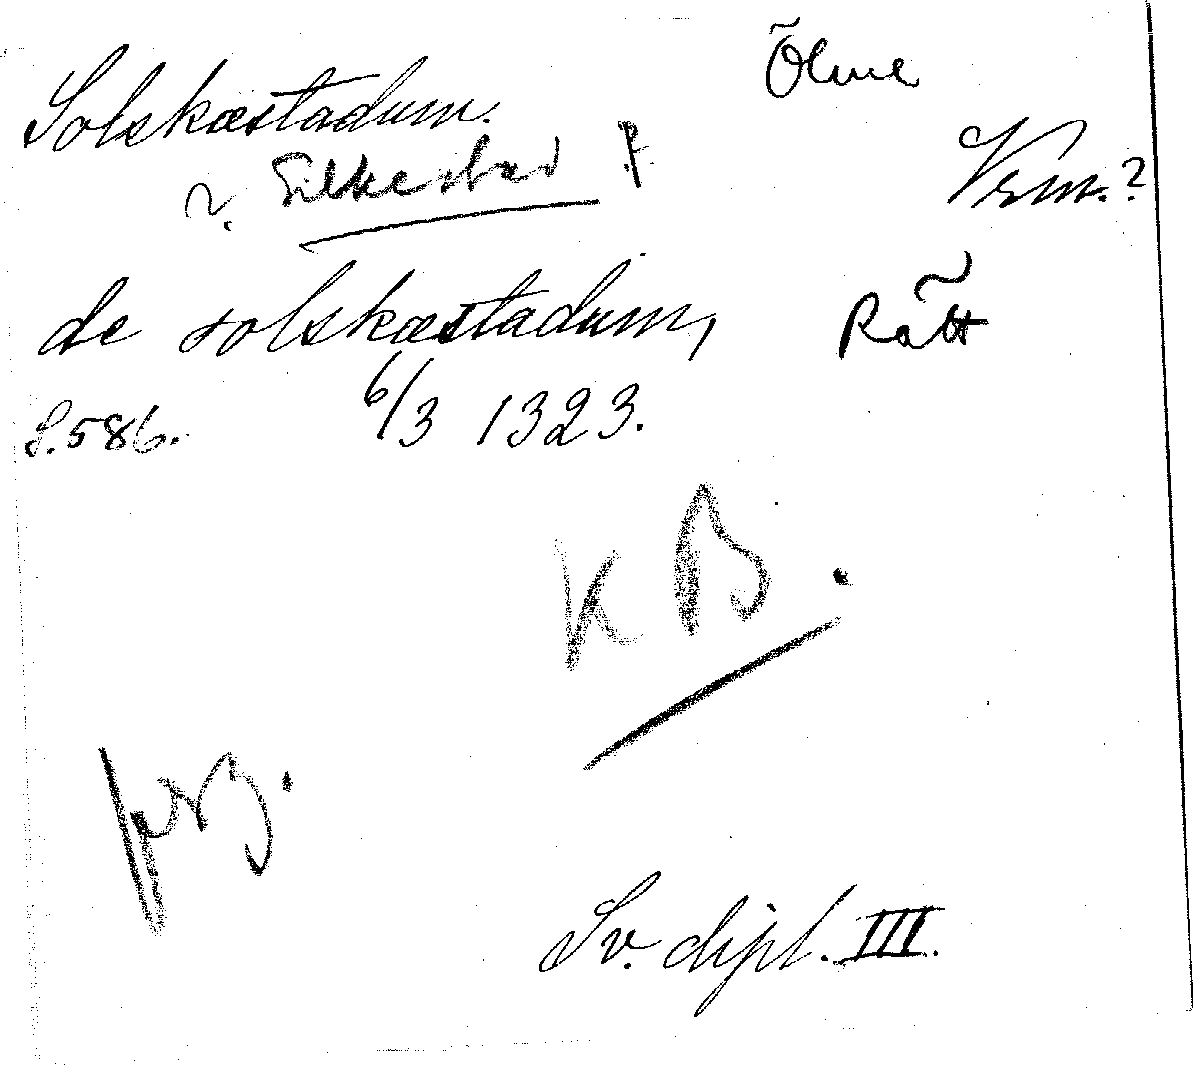 Solskæstadum.
Ölme
v. Silkestad ?
Vrm.?
de solskæstadum,
Rätt
S. 586. 6/3 1323.
KB.
Sv. dipl. III.